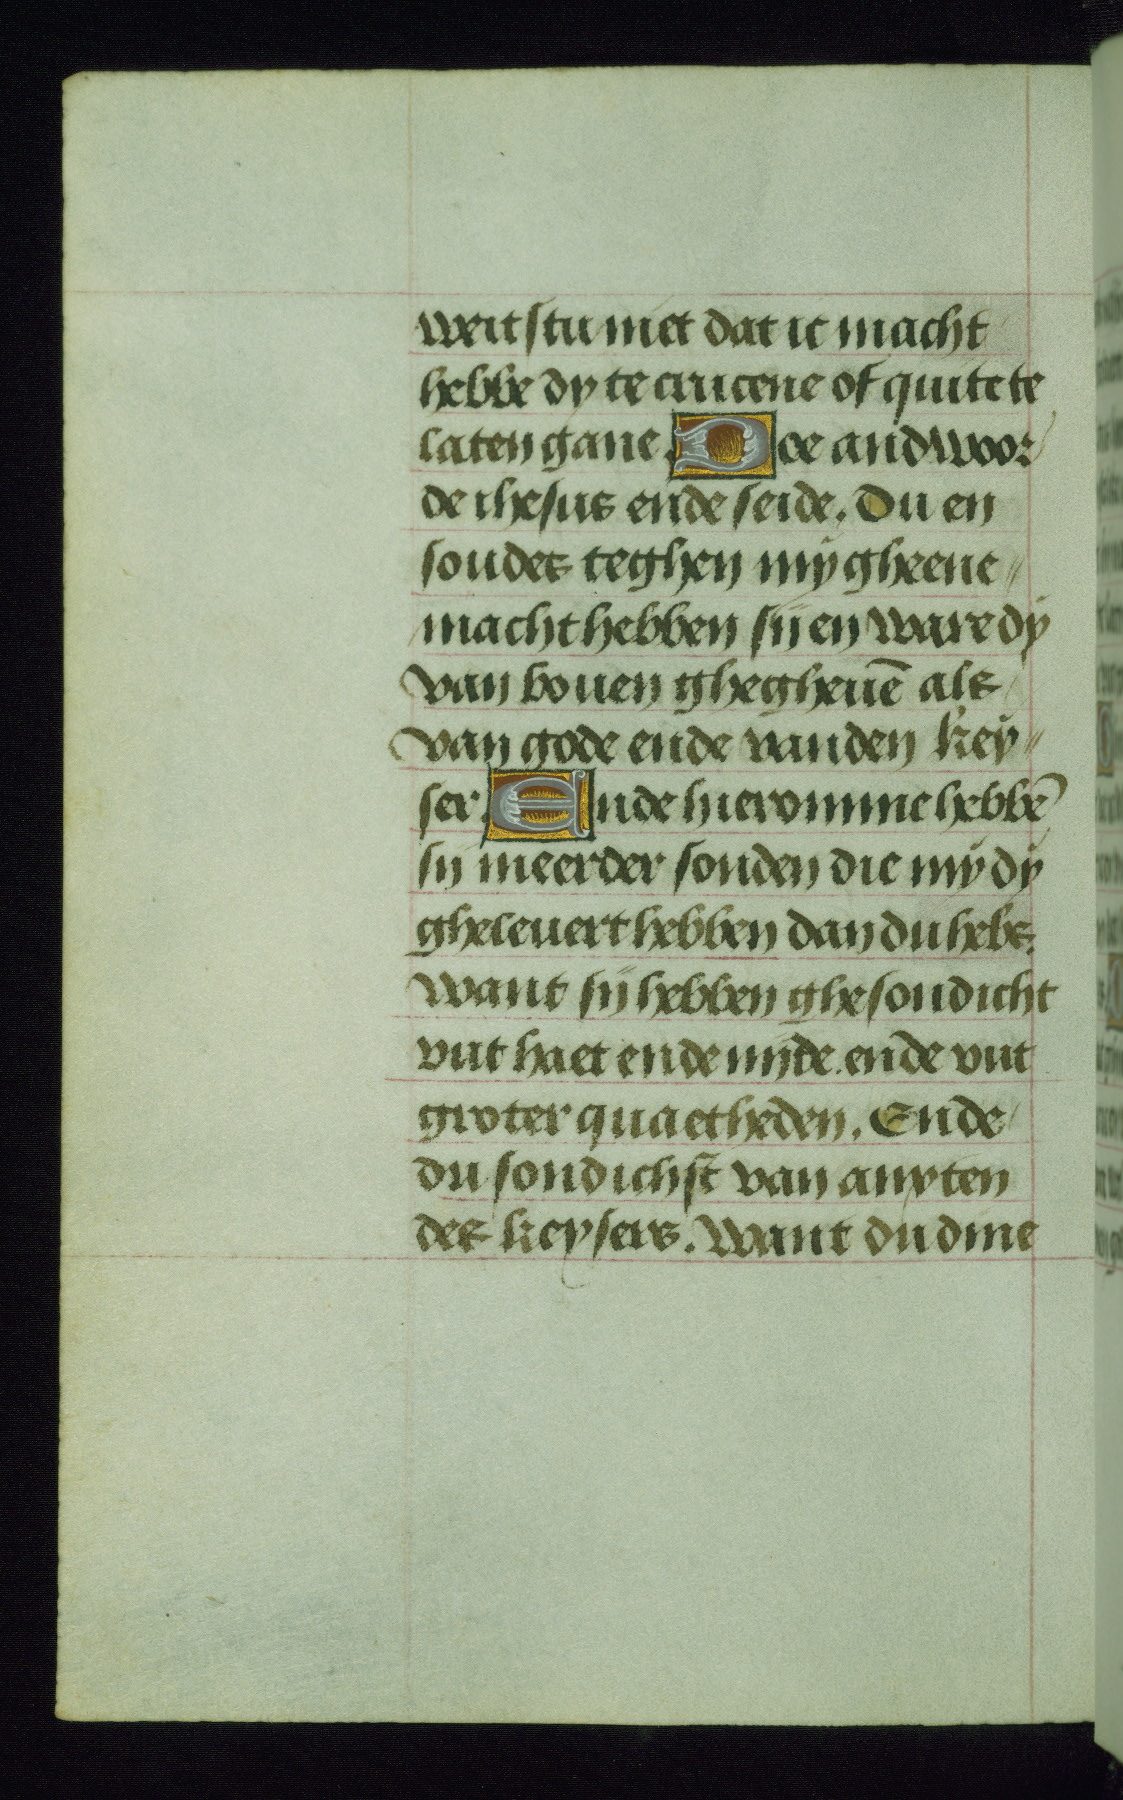 weitstu niet dat ic macht
hebbe dy te crucene of quite te
laten gane. Doe andwoor
de ihesus ende seide. Du en
soudes teghen mÿ gheene
macht hebben sij en ware dÿ
van bouen ghegheuē als
van gode ende vanden keÿ
ser. Ende hieromme hebbē
sij meerder sonden die mÿ dÿ
gheleuert hebben dan du hebs.
Want sij hebben ghesondicht
vut haet ende nijde. ende vut
groter quaetheden. Ende
du sondichst van anxten
des keysers. Want du dine